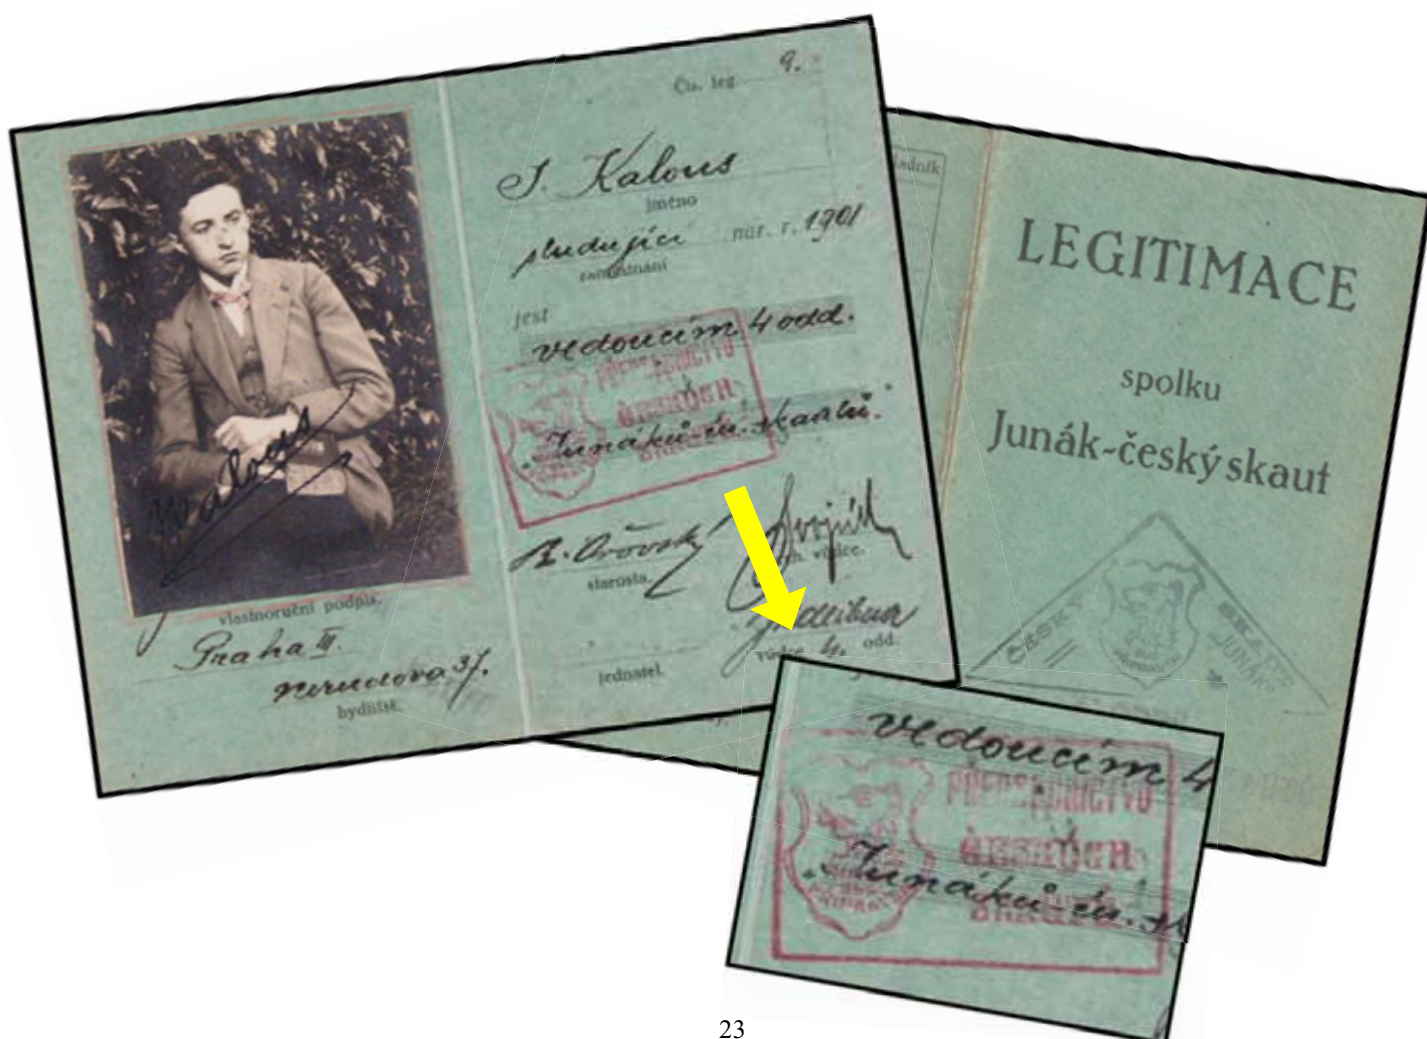 Čís. leg. 9.
J. Kalous
jméno
studující nar. r. 1901
zaměstnání
jest
vedoucím 4 odd.
PŘEDSEDNICTVO
"Junáků-čs. skautů."
starosta.
vůdce.
jednatel.
vůdce 4. odd.
Kalous
vlastnoruční podpis.
Praha III.
Nerudova 37.
bydliště.
LEGITIMACE
spolku
Junák-český skaut
ČESKÝ SKAUT
"JUNÁK"
BUĎ
PŘIPRAVEN
vedoucím 4
PŘEDSEDNICTVO
"Junáků-čs. sk
23